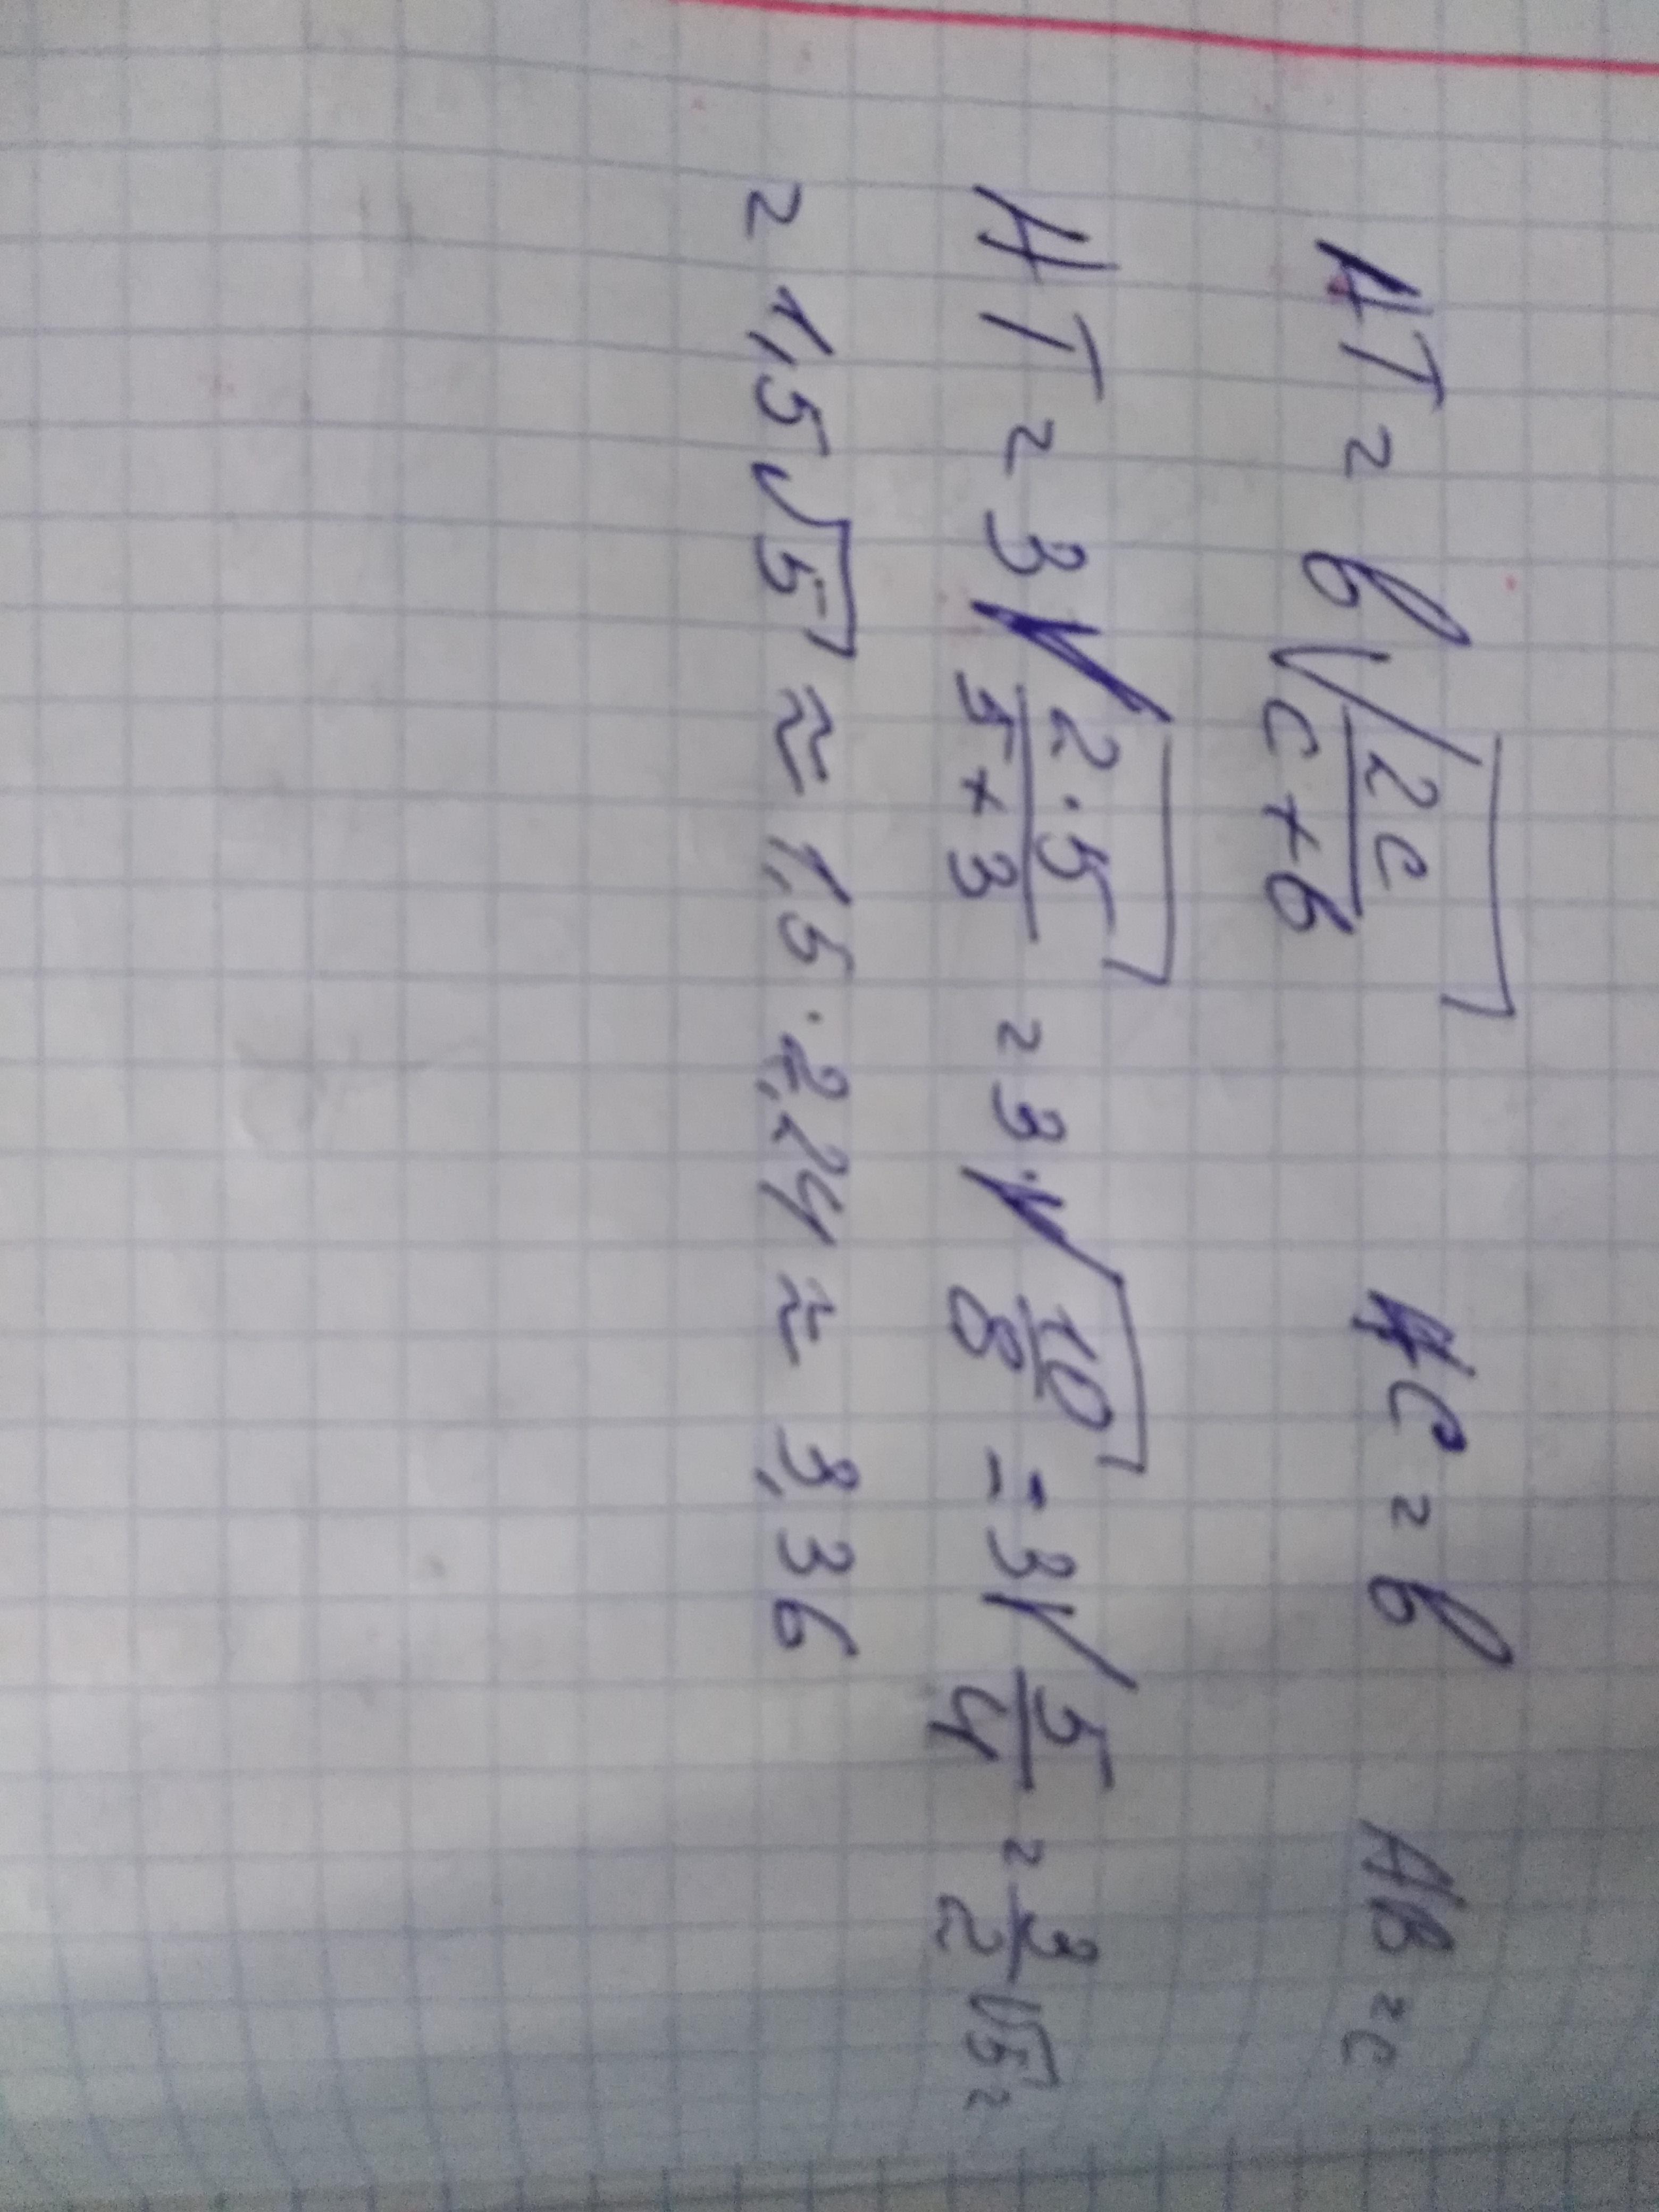 AT = b√(2c/(c+b)) AC = b AB = c
AT = 3√(2·5/(5+3)) = 3·√(10/8) = 3√(5/4) = 3/2 √5 =
= 1,5√5 ≈ 1,5·2,24 ≈ 3,36